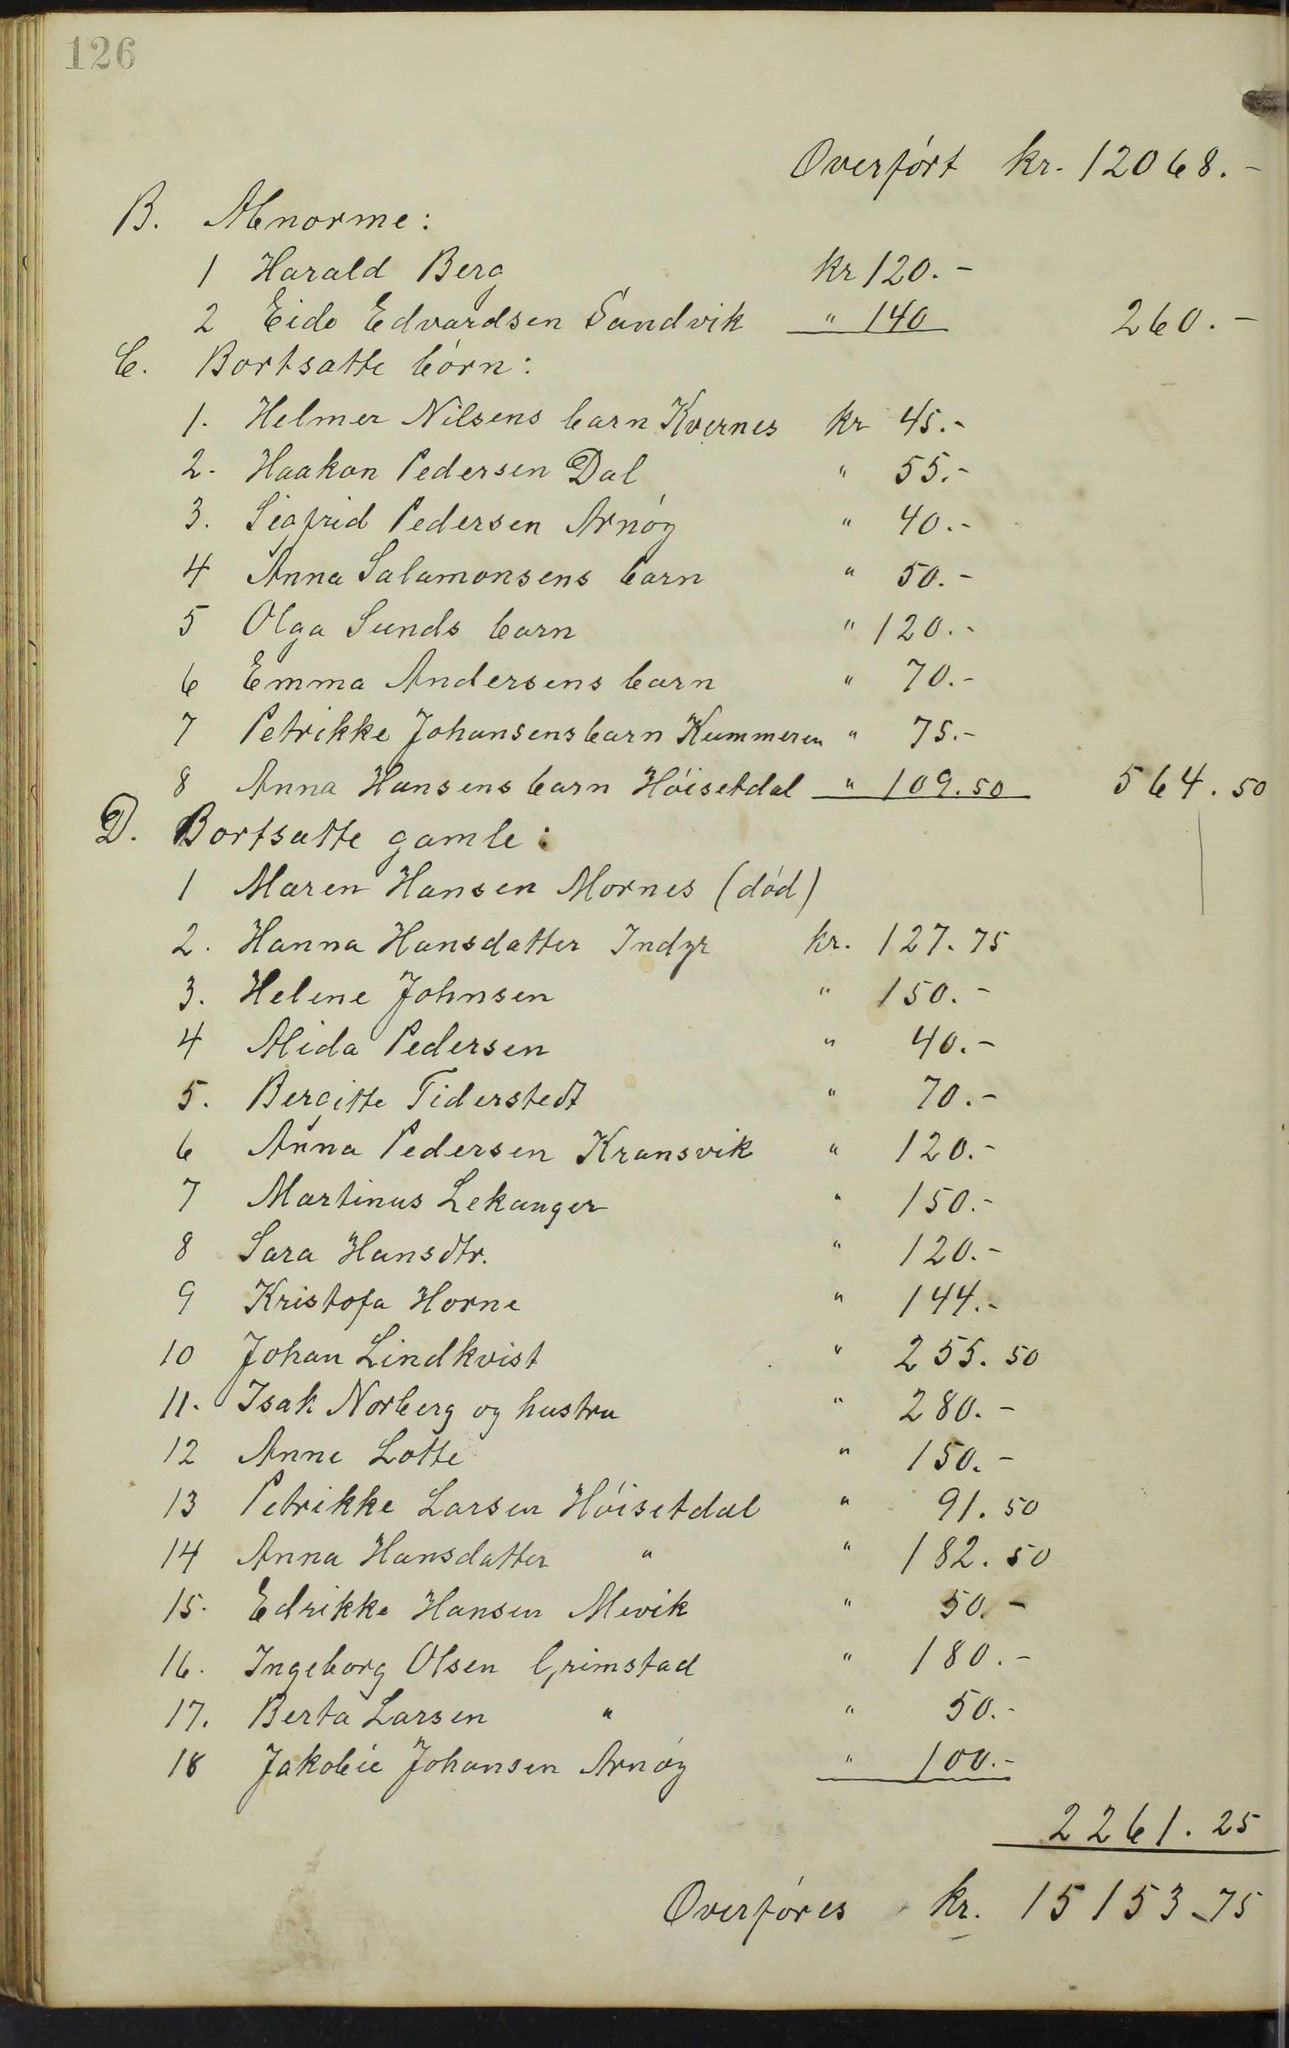 126
Overfört kr. 12068.-
B. Abnorme:
1 Harald Berg kr 120.-
2 Eide Edvardsen Sandvik " 140 260.-
C. Bortsatte börn:
1. Helmer Nilsens barn Kvernes kr 45.-
2. Haakon Pedersen Dal " 55.-
3. Sigfrid Pedersen Arnöy " 40.-
4 Anna Salamonsens barn " 50.-
5 Olga Sunds barn " 120.-
6 Emma Andersens barn " 70.-
7 Petrikke Johansens barn Kummeren " 75.-
8 Anna Hansens barn Höisetdal " 109.50 564.50
D. Bortsatte gamle:
1 Maren Hansen Mornes (död)
2. Hanna Hansdatter Indyr kr. 127.75
3. Helene Johnsen " 150.-
4 Alida Pedersen " 40.-
5. Bergitte Tiderstedt " 70.-
6 Anna Pedersen Kransvik " 120.-
7 Martinus Lekanger " 150.-
8 Sara Hansdtr. " 120.-
9 Kristofa Horne " 144.-
10 Johan Lindkvist " 255.50
11. Isak Norberg og hustru " 280.-
12 Anne Lotte " 150.-
13 Petrikke Larsen Höisetdal " 91.50
14 Anna Hansdatter " " 182.50
15. Edrikke Hansen Mevik " 50.-
16. Ingeborg Olsen Grimstad " 180.-
17. Berta Larsen " " 50.-
18 Jakobie Johansen Arnöy " 100.-
2261.25
Overföres kr. 15153.75